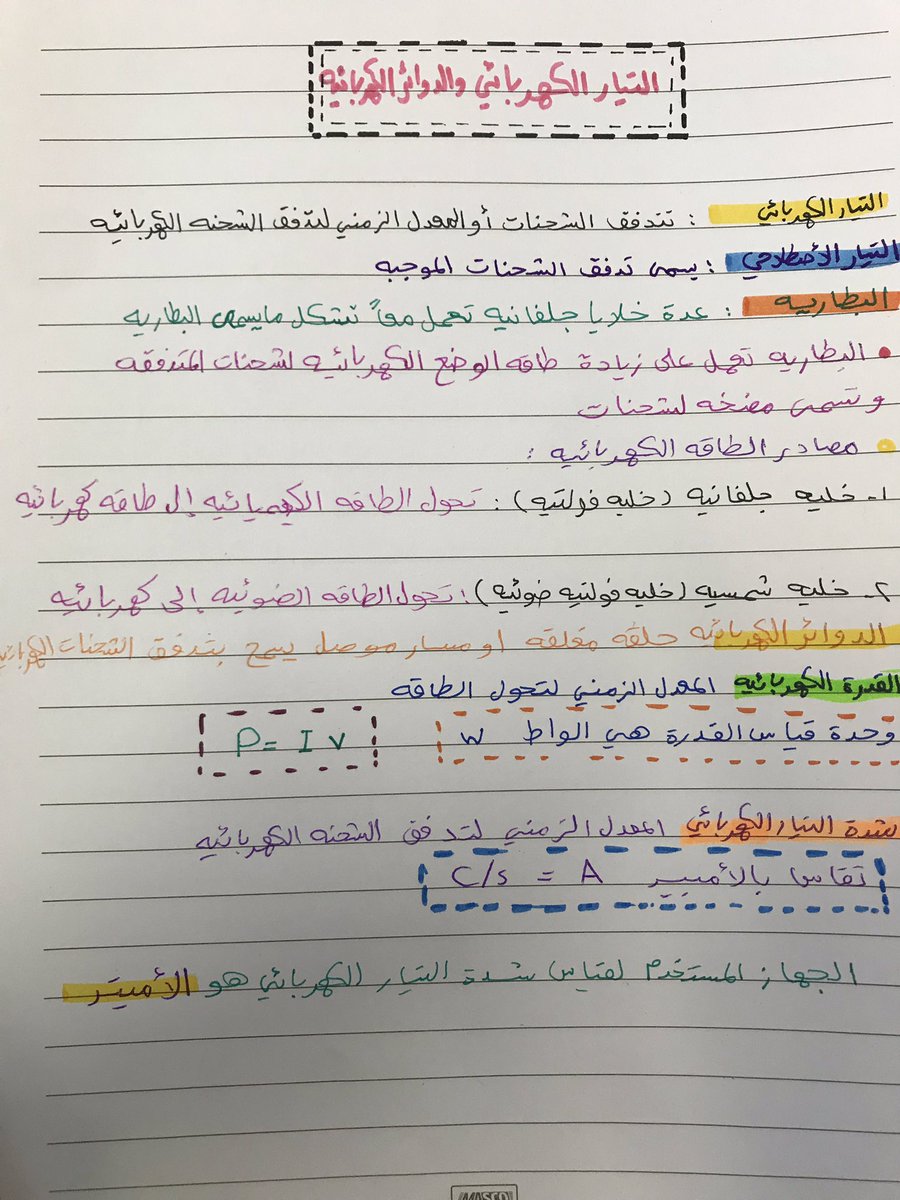 التيار الكهربائي والدوائر الكهربائيه
التيار الكهربائي : تتدفق الشحنات أو المعدل الزمني لتدفق الشحنه الكهربائيه
التيار الأصطلاحي : يسمى تدفق الشحنات الموجبه
البطاريه : عدة خلايا جلفانيه تعمل معاً تشكل مايسمى البطاريه
• البطاريه تعمل على زيادة طاقه الوضع الكهربائيه لشحنات المتدفقه
وتسمى مضخه لشحنات
• مصادر الطاقه الكهربائيه :
١- خليه جلفانيه (خليه فولتيه) : تحول الطاقه الكيميائيه إلى طاقه كهربائيه
٢- خليه شمسيه (خليه فولتيه ضوئيه) : تحول الطاقه الضوئيه إلى كهربائيه
الدوائر الكهربائيه حلقه مغلقه او مسار موصل يسمح بتدفق الشحنات الكهربائيه
القدرة الكهربائيه المعدل الزمني لتحول الطاقه
وحدة قياس القدرة هي الواط W P = I V
شدة التيار الكهربائي المعدل الزمني لتدفق الشحنه الكهربائيه
تقاس بالأمبير C/s = A
الجهاز المستخدم لقياس شدة التيار الكهربائي هو الأميتر
MASCO